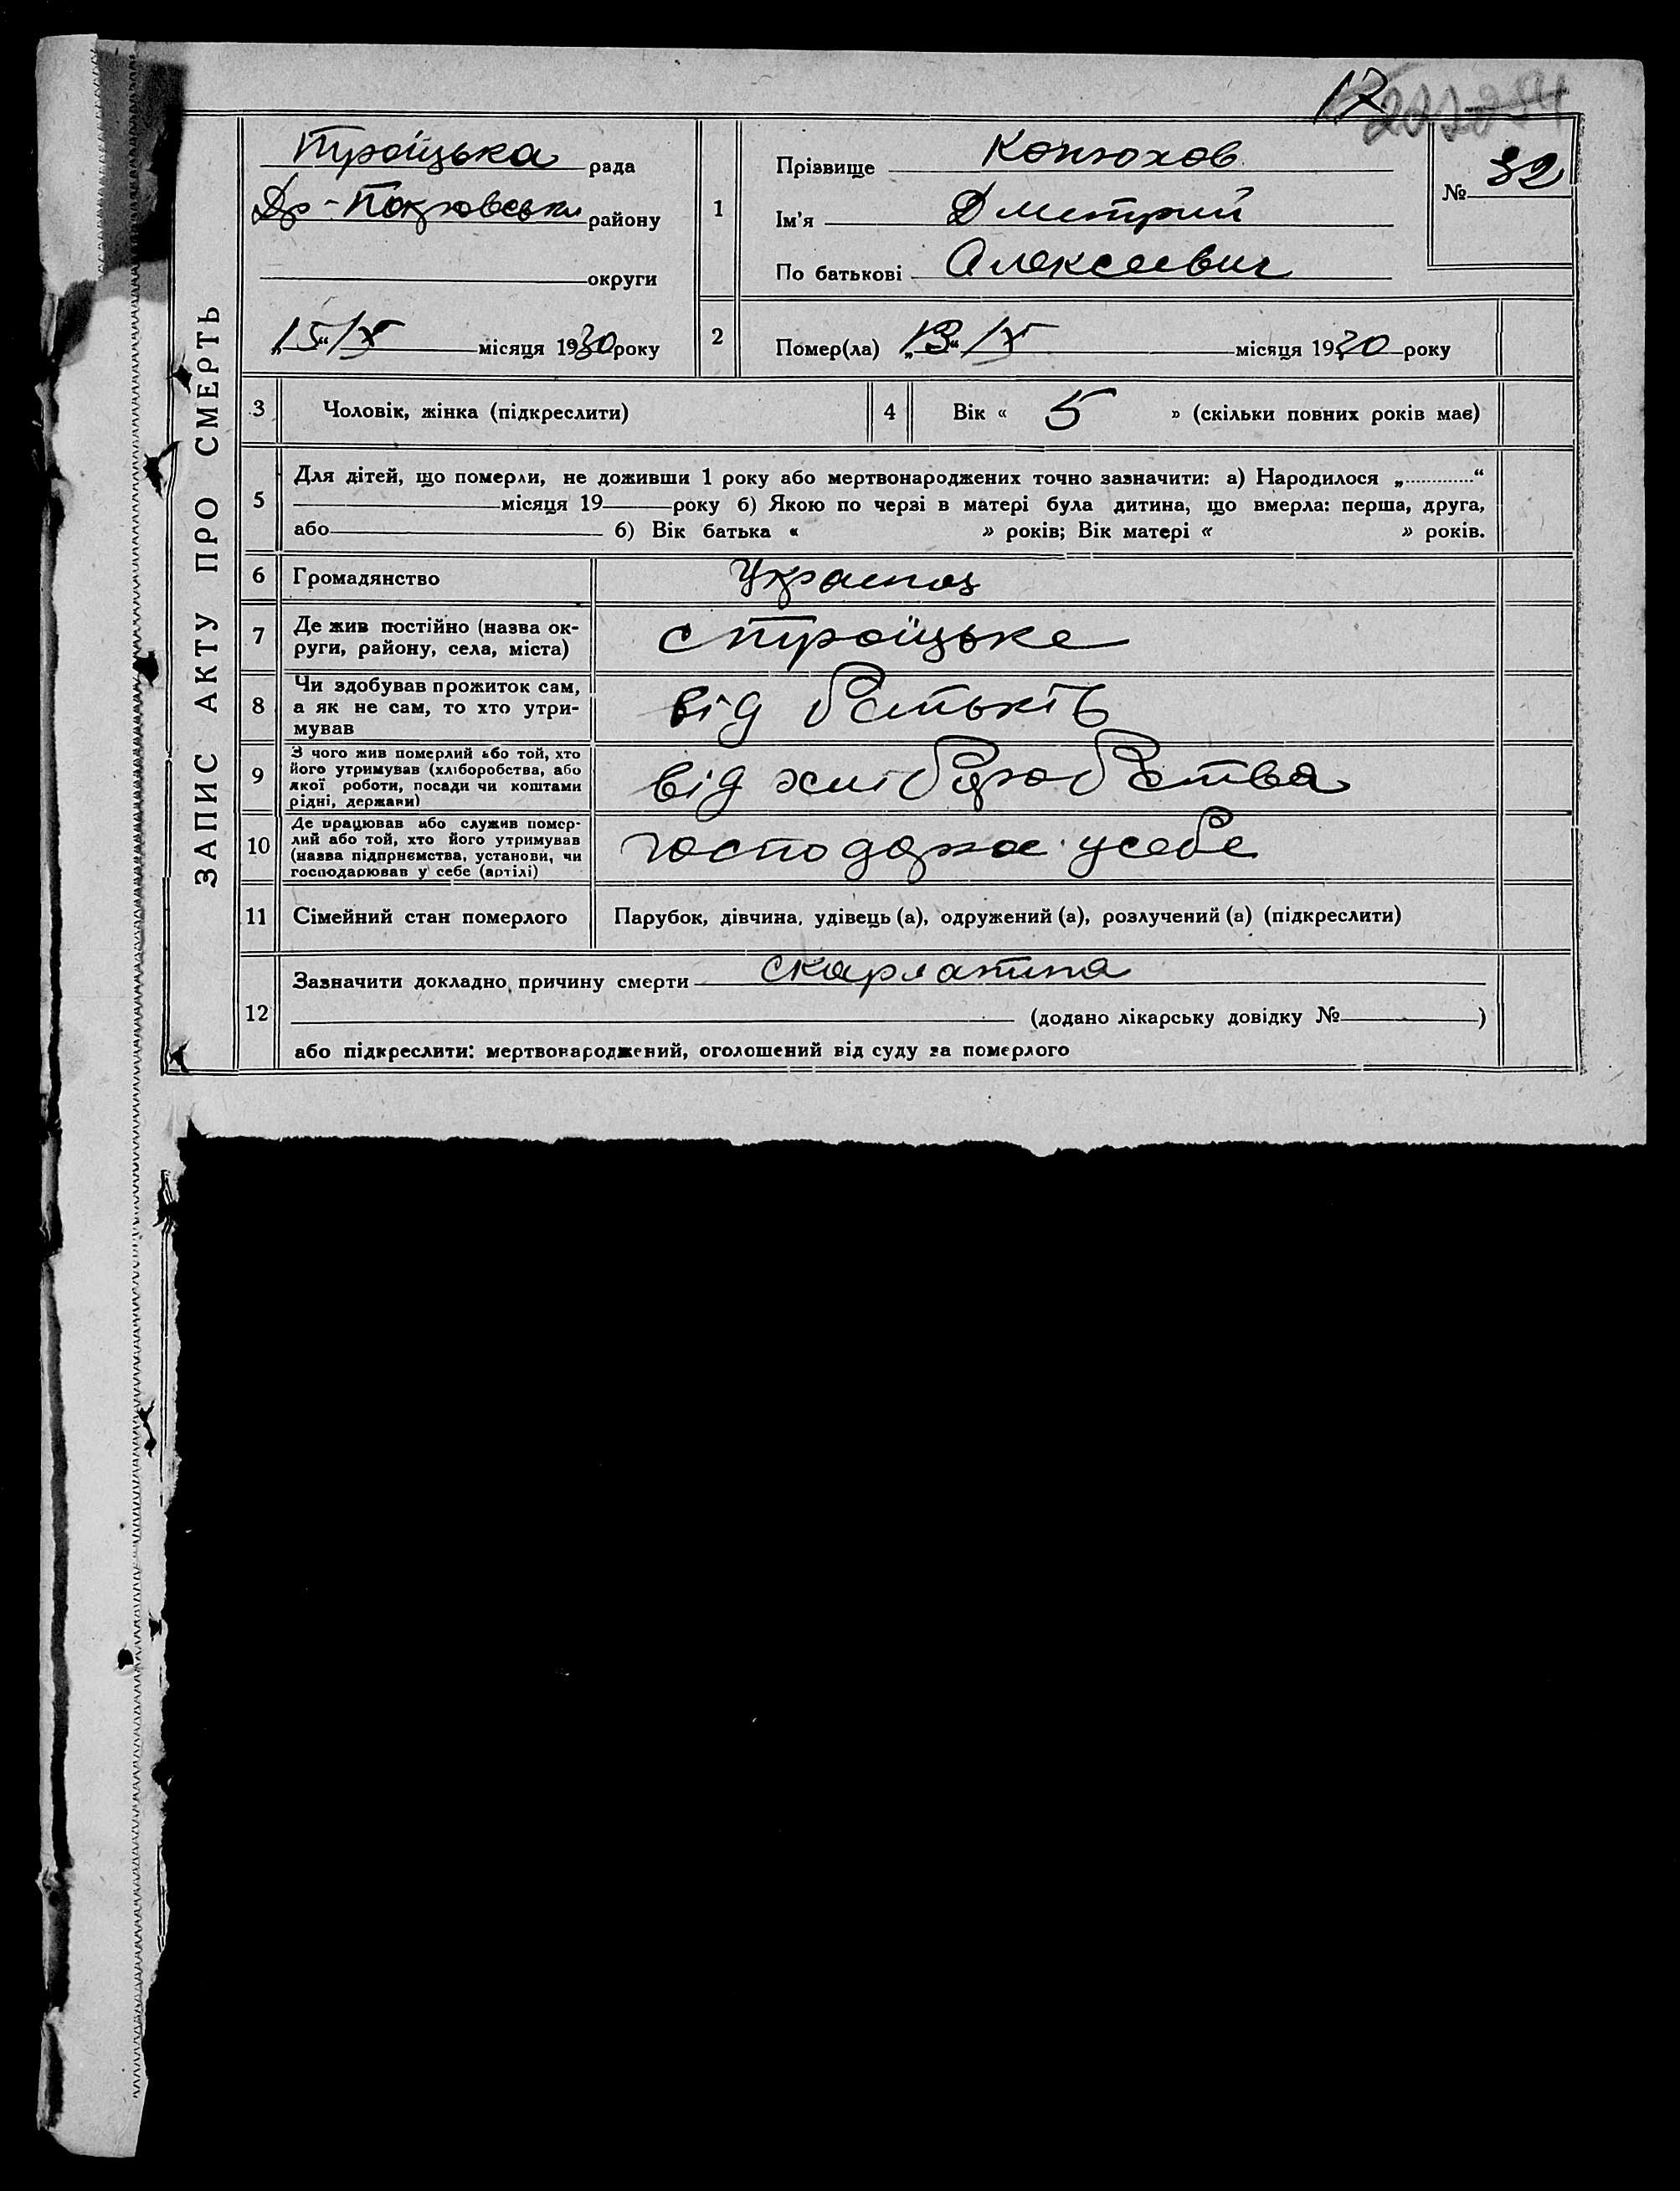 17
ЗАПИС АКТУ ПРО СМЕРТЬ
Троїцька рада
Др-Покровськ району
округи
„15“ / X місяця 1930 року
1
Прізвище Конюхов
Ім'я Дмитрий
По батькові Алексеевич
№ 32
2
Помер(ла) „13“ / X місяця 1930 року
3 Чоловік, жінка (підкреслити)
4 Вік « 5 » (скільки повних років має)
5
Для дітей, що померли, не доживши 1 року або мертвонароджених точно зазначити: а) Народилося „.............“
місяця 19 року б) Якою по черзі в матері була дитина, що вмерла: перша, друга,
або б) Вік батька « » років; Вік матері « » років.
6 Громадянство Украинец
7 Де жив постійно (назва ок-
руги, району, села, міста)
с Троїцьке
8 Чи здобував прожиток сам,
а як не сам, то хто утри-
мував
від батьків
9 З чого жив померлий або той, хто
його утримував (хліборобства, або
якої роботи, посади чи коштами
рідні, держави)
від хліборобства
10 Де працював або служив помер-
лий або той, хто його утримував
(назва підприємства, установи, чи
господарював у себе (артілі)
господарює у себе
11 Сімейний стан померлого Парубок, дівчина, удівець (а), одружений (а), розлучений (а) (підкреслити)
12
Зазначити докладно причину смерти скарлатина
(додано лікарську довідку № )
або підкреслити: мертвонароджений, оголошений від суду за померлого